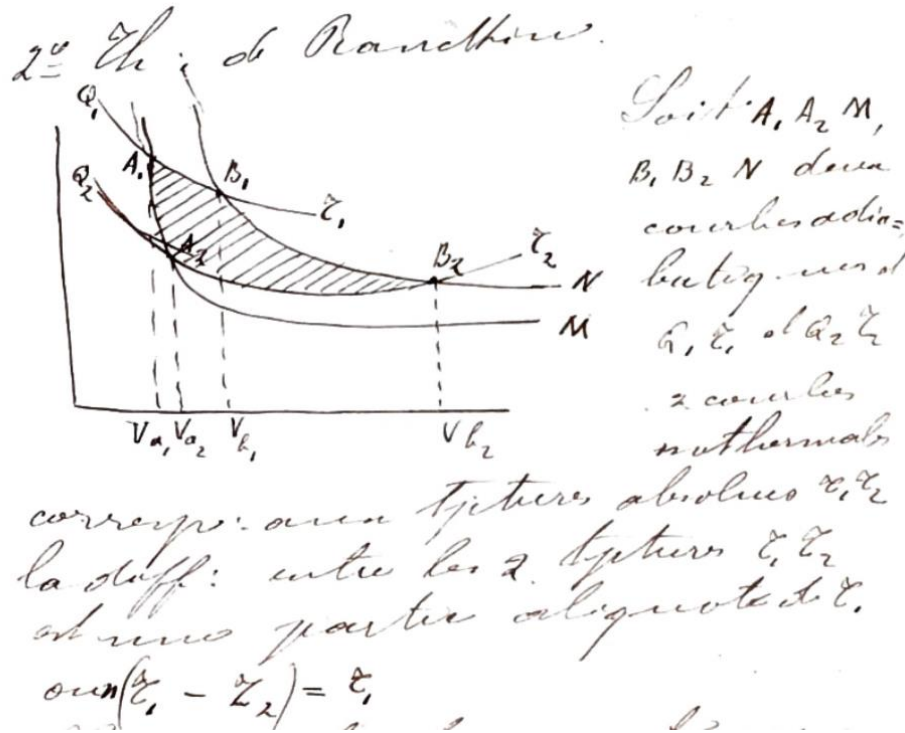 2e Th: de Rancthine.
Q₁
A₁
B₁
τ₁
Q₂
A₂
B₂
τ₂
N
M
Va₁ Va₂ Vb₁ Vb₂
Soit A₁ A₂ M,
B₁ B₂ N deux
courbes adia=
batiques et
Q₁ τ₁ et Q₂ τ₂
2 courbes
isothermals
corresp: aux tptures absolues τ₁ τ₂
la diff: entre les 2 tptures τ₁ τ₂
est une partie aliquote de τ₁
ou n(τ₁ - τ₂) = τ₁